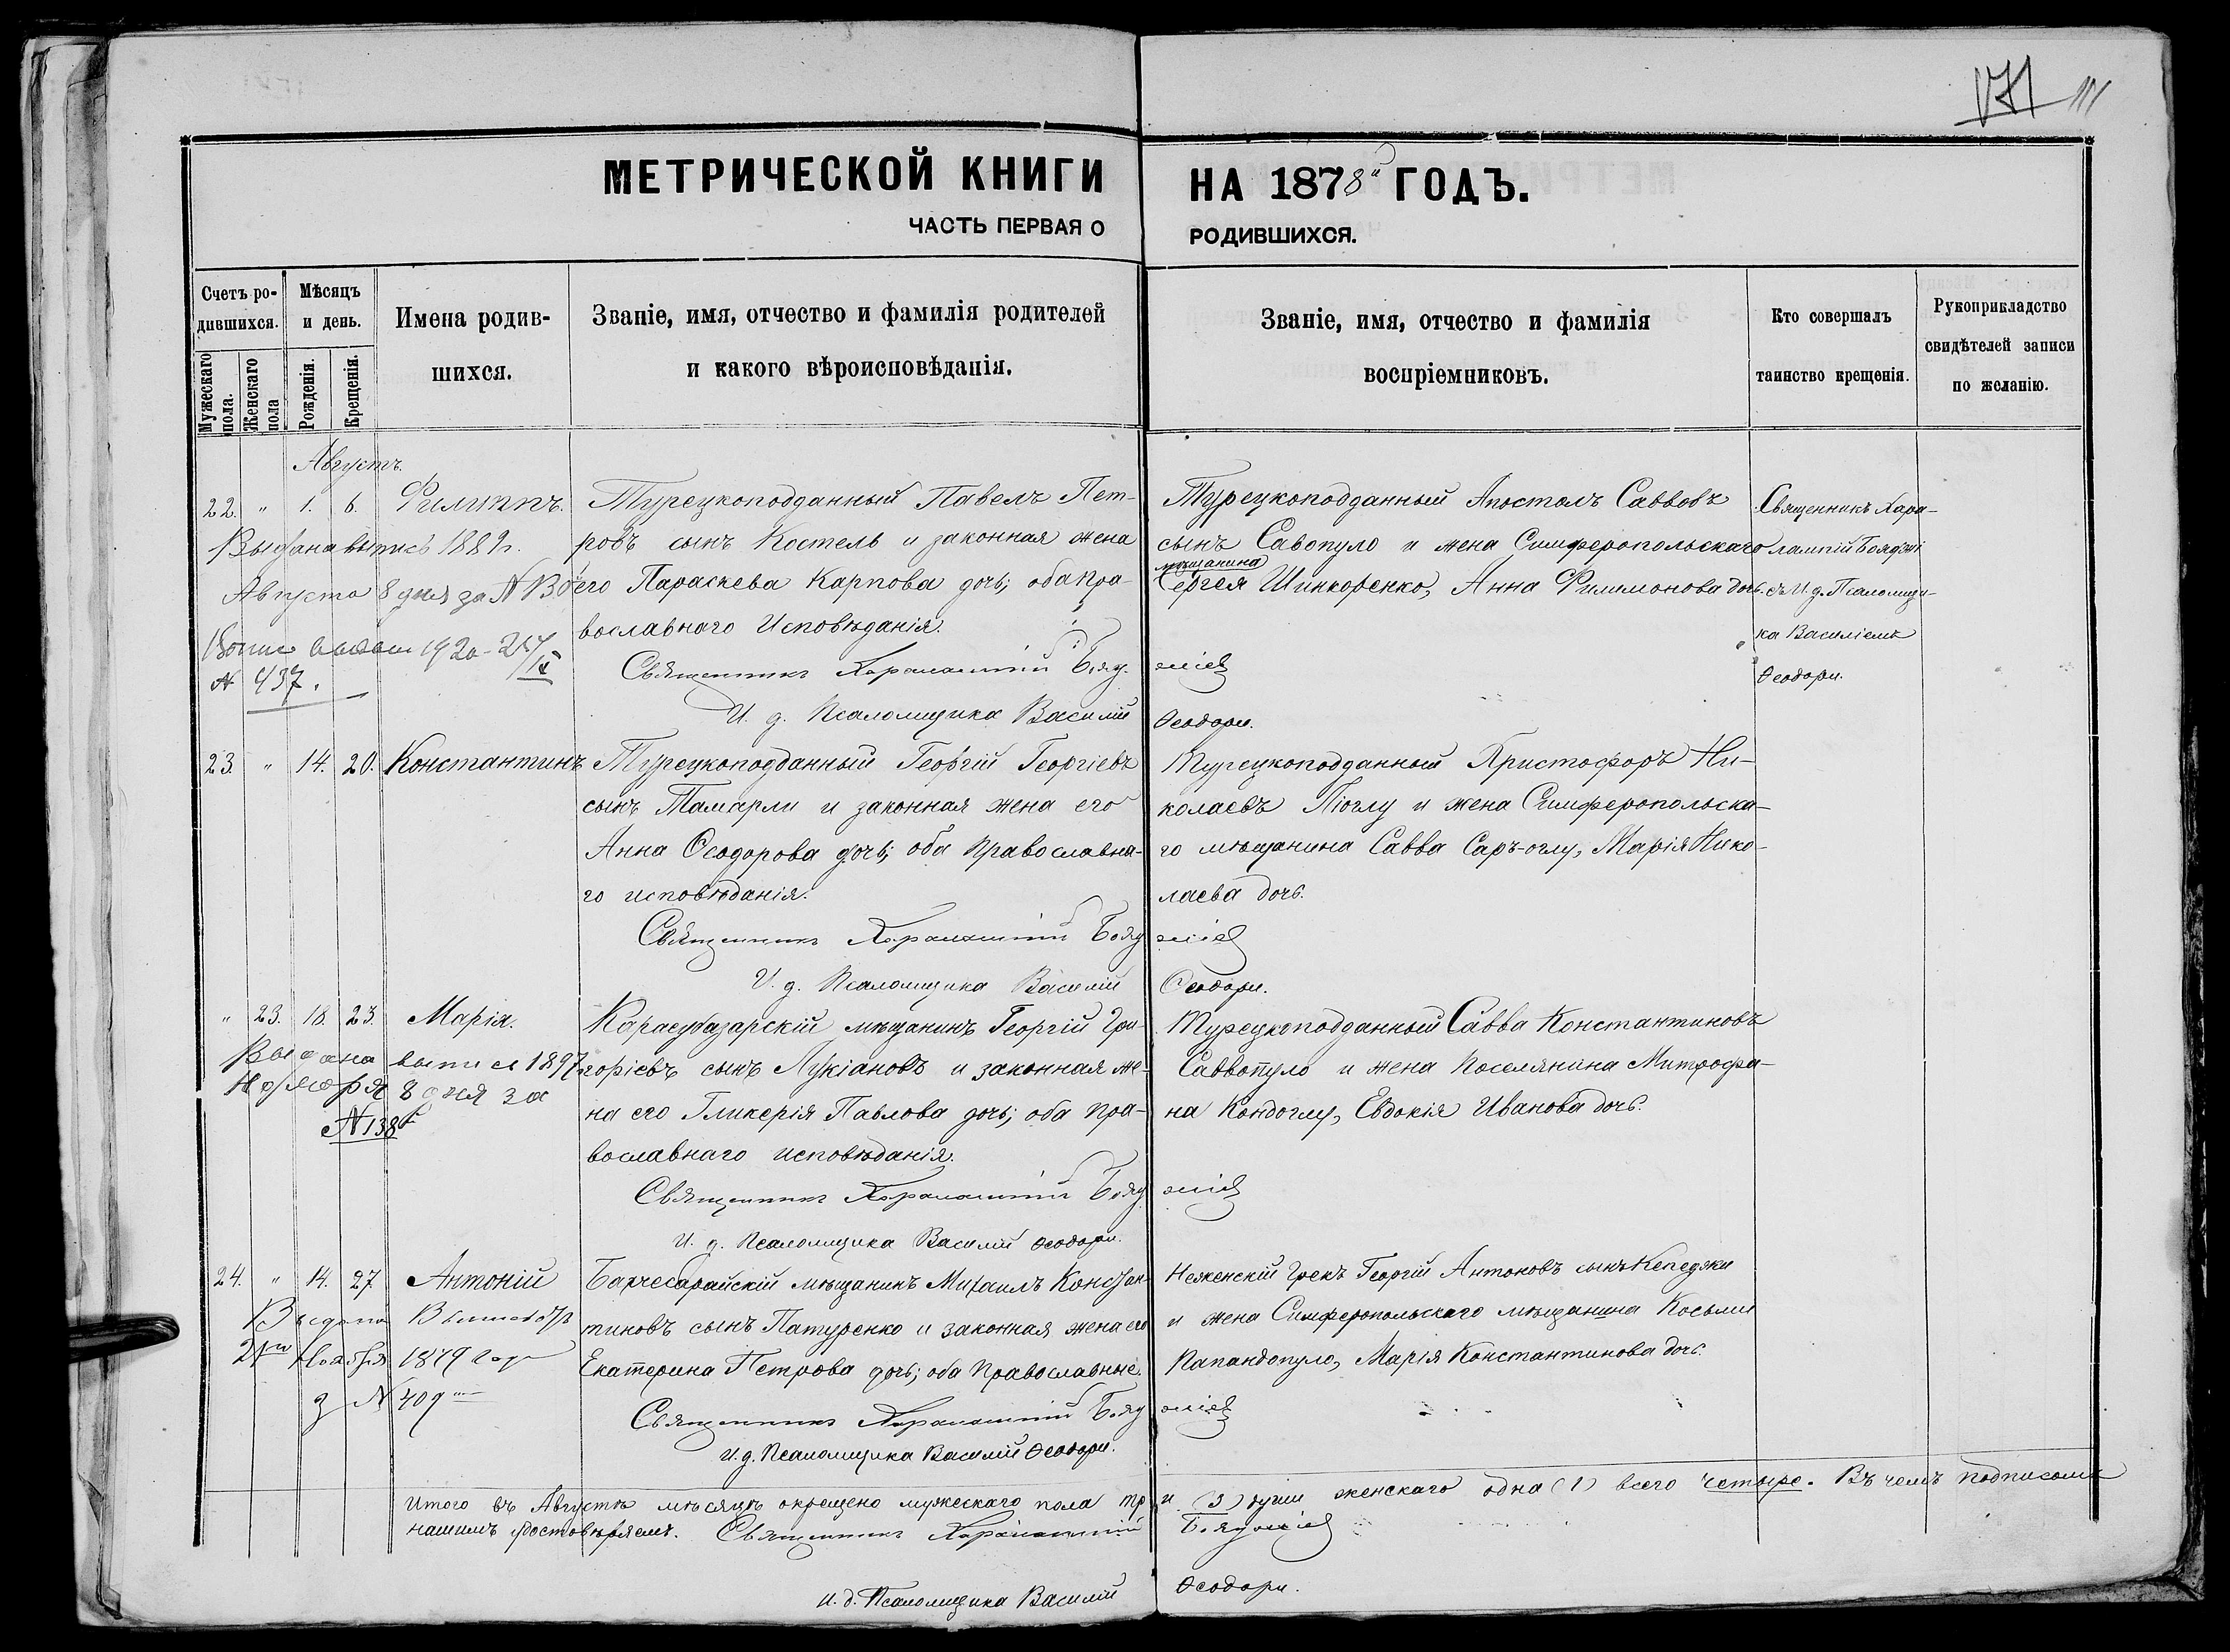 171 111
МЕТРИЧЕСКОЙ КНИГИ НА 1878й ГОДЪ.
ЧАСТЬ ПЕРВАЯ О РОДИВШИХСЯ.
Счетъ ро-
дившихся.
Мужескаго
пола.
Женскаго
пола
Мѣсяцъ
и день.
Рожденія.
Крещенія.
Имена родив-
шихся.
Званіе, имя, отчество и фамилія родителей
и какого вѣроисповѣданія.
Званіе, имя, отчество и фамилія
воспріемниковъ.
Кто совершалъ
таинство крещенія.
Рукоприкладство
свидѣтелей записи
по желанію.
Августъ.
22. " 1. 6. Филиппъ.
Выдана выпись 1889г.
Августа 8 дня за №
1920
№ 437.
Турецкоподданный Павелъ Пет-
ровъ сынъ Костель и законная жена
его Параскева Карпова дочь; оба пра-
вославнаго Исповѣданія.
Священникъ Харалампій Бояд-
жіев
И. д. Псаломщика Василій Ѳеодори.
Турецкоподданный Апостолъ Саввовъ
сынъ Савопуло и жена Симферопольскаго
мѣщанина
Сергея Шинкоренко, Анна Филимонова дочь.
Священникъ Хара-
лампій Бояджі
съ И. д. Псаломщи-
ка Василіемъ
Ѳеодори.
23. " 14. 20. Константинъ
Турецкоподданный Георгій Георгіевъ
сынъ Тамарли и законная жена его
Анна Ѳеодорова дочь; оба Православна-
го исповѣданія.
Священникъ Харалампій Бояд
жіев
И. д. Псаломщика Василій Ѳеодори.
Турецкоподданный Христофоръ Ни-
колаевъ Піоглу и жена Симферопольска-
го мѣщанина Савва Саръ-оглу, Марія Нико-
лаева дочь.
" 23. 18. 23. Марія.
Выдана выпись 1897
Ноября 8 дня за
№ 138
Карасубазарскій мѣщанинъ Георгій Гри-
горіевъ сынъ Лукіановъ и законная же-
на его Гликерія Павлова дочь; оба пра-
вославнаго исповѣданія.
Священникъ Харалампій Бояд
жіев
И. д. Псаломщика Василій Ѳеодори.
Турецкоподданный Савва Константиновъ
Саввопуло и жена Поселянина Митрофа-
на Кондоглу, Евдокія Иванова дочь.
24. " 14. 27 Антоній
Выдана
21го Ноября 1879 года
з № 409
Бахчесарайскій мѣщанинъ Михаилъ Констан-
тиновъ сынъ Патуренко и законная жена его
Екатерина Петрова дочь; оба Православные.
Священникъ Харалампій Бояд
жіев
И. д. Псаломщика Василій Ѳеодори.
Неженскій Грекъ Георгій Антоновъ сынъ Кепеджи
и жена Симферопольскаго мѣщанина Косьми
Папандопуло, Марія Константинова дочь.
Итого въ Августѣ мѣсяцѣ окрещено мужескаго пола три (3) души женскаго одна (1) всего четыре. Въ чемъ подписомъ
нашимъ удостовѣряемъ. Священникъ Харалампій Бояджіев
и. д. Псаломщика Василій Ѳеодори.